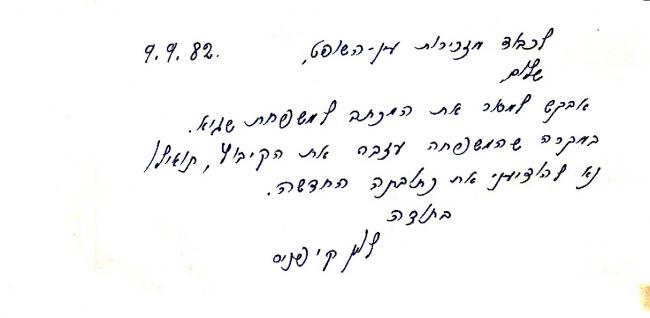 9.9.82.
לכבוד מזכירות עין-השופט,
שלום,
אבקש למסור את המכתב למשפחת שגיא.
במקרה שהמשפחה עזבה את הקיבוץ, תואיל/
נא להודיעני את כתובתה החדשה.
בתודה